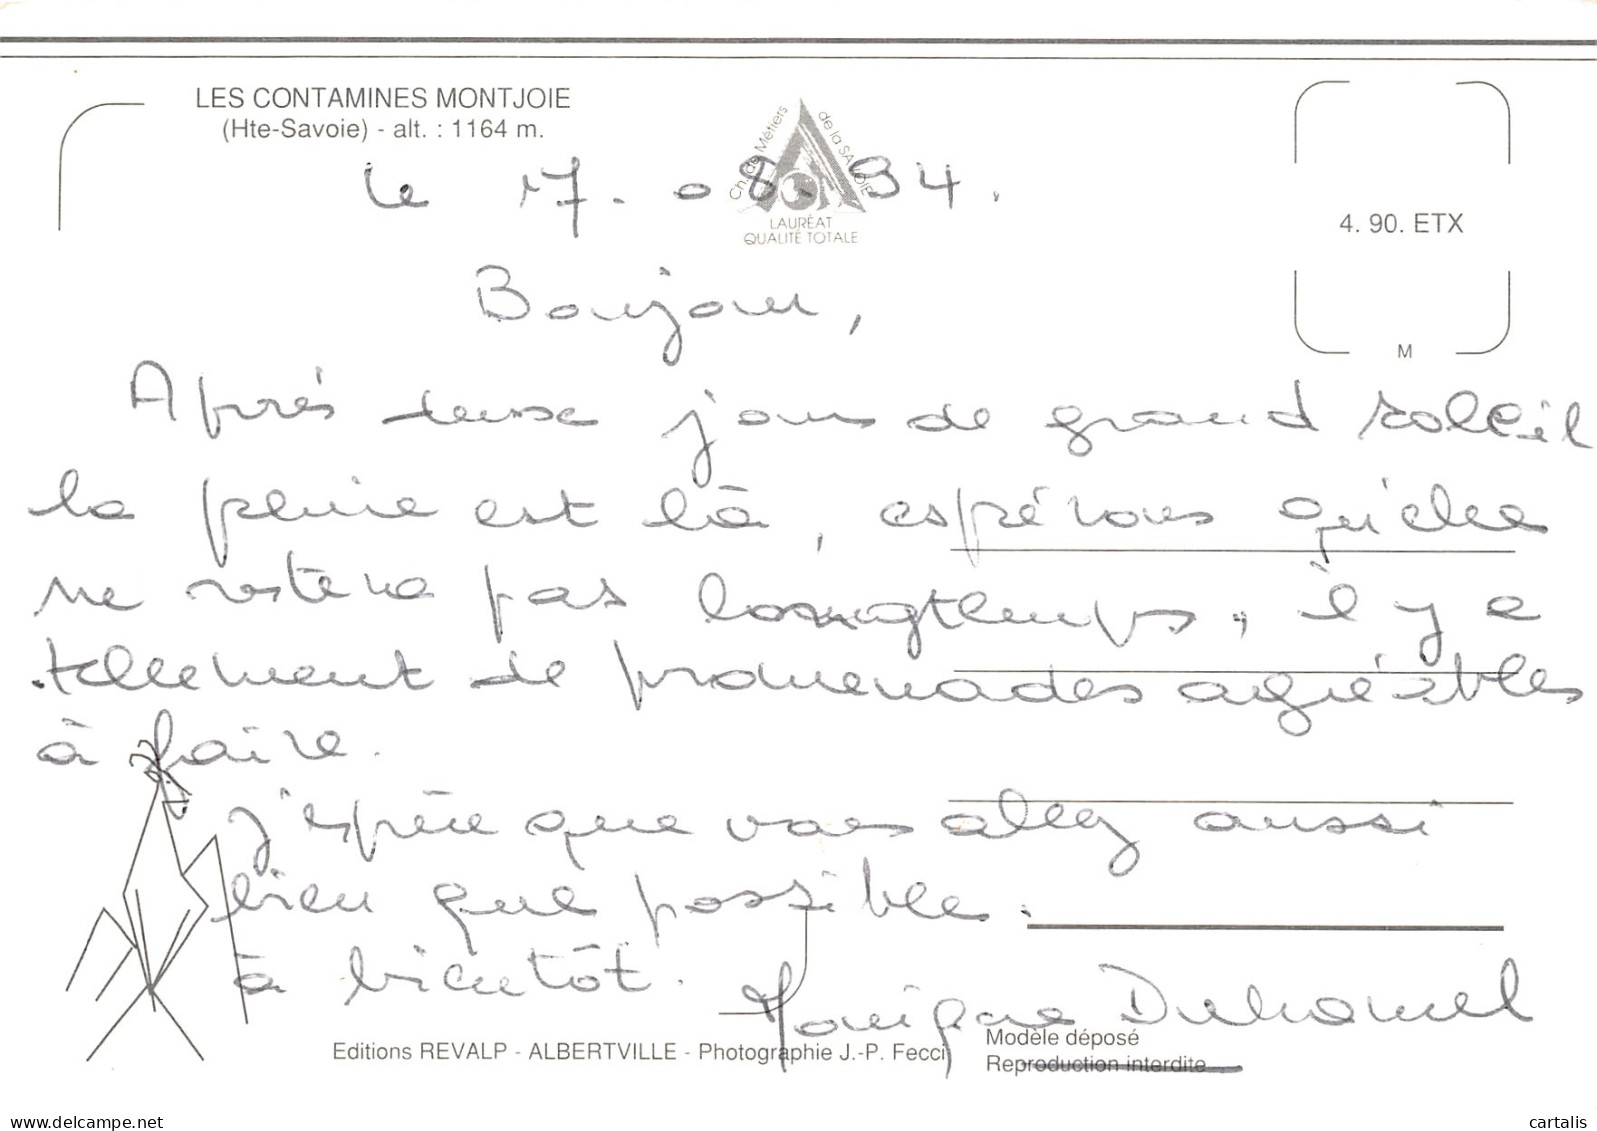 LES CONTAMINES MONTJOIE
(Hte-Savoie) - alt. : 1164 m.
Ch. de Métiers de la SAVOIE
LAURÉAT
QUALITÉ TOTALE
4. 90. ETX
M
le 17. 08. 94.
Bonjour,
Après deux jours de grand soleil
la pluie est là, espérons qu'elle
ne restera pas longtemps, il y a
tellement de promenades agréables
à faire.
j'espère que vous allez aussi
bien que possible.
à bientôt.
Monique Duhamel
Editions REVALP - ALBERTVILLE - Photographie J.-P. Fecci
Modèle déposé
Reproduction interdite
delcampe.net
cartalis